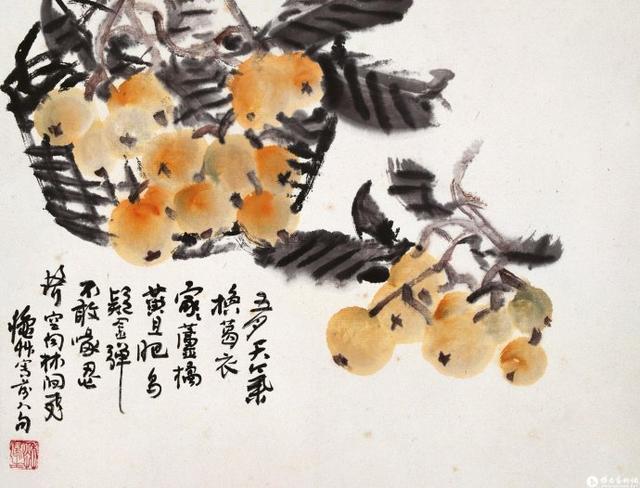 五月天氣
換葛衣
家々蘆橘
黃且肥鳥
疑金彈
不敢啄忍
饑空向林間飛
竹寫前人句